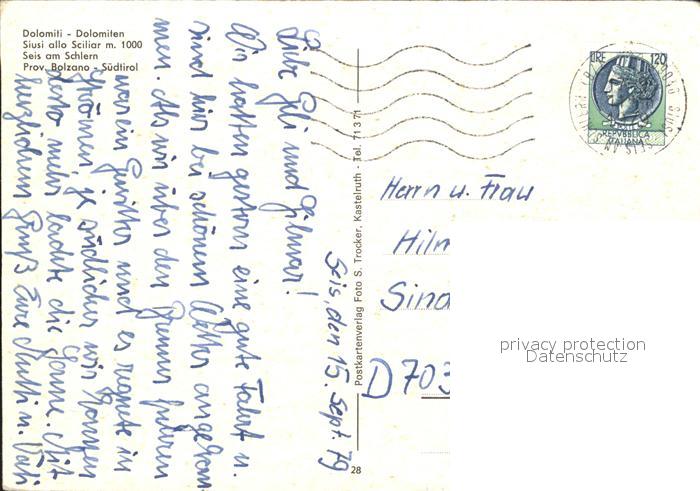 Dolomiti - Dolomiten
Siusi allo Sciliar m. 1000
Seis am Schlern
Prov. Bolzano - Südtirol
Seis, den 15. Sept. 79
Liebe und Hilmar!
Wir hatten gestern eine gute Fahrt u.
sind hier bei schönem Wetter angekom-
men. Als wir über den Brenner fuhren
war ein Gewitter und es regnete in
Strömen je südlicher wir kamen
desto mehr lachte die Sonne. Mit
herzlichem Gruß Eure Mutti u. Vati
Postkartenverlag Foto S. Trocker, Kastelruth - Tel. 71371
28
LIRE 120
REPVBBLICA
ITALIANA
Herrn u. Frau
Hilm
Sind
D 703
privacy protection
Datenschutz